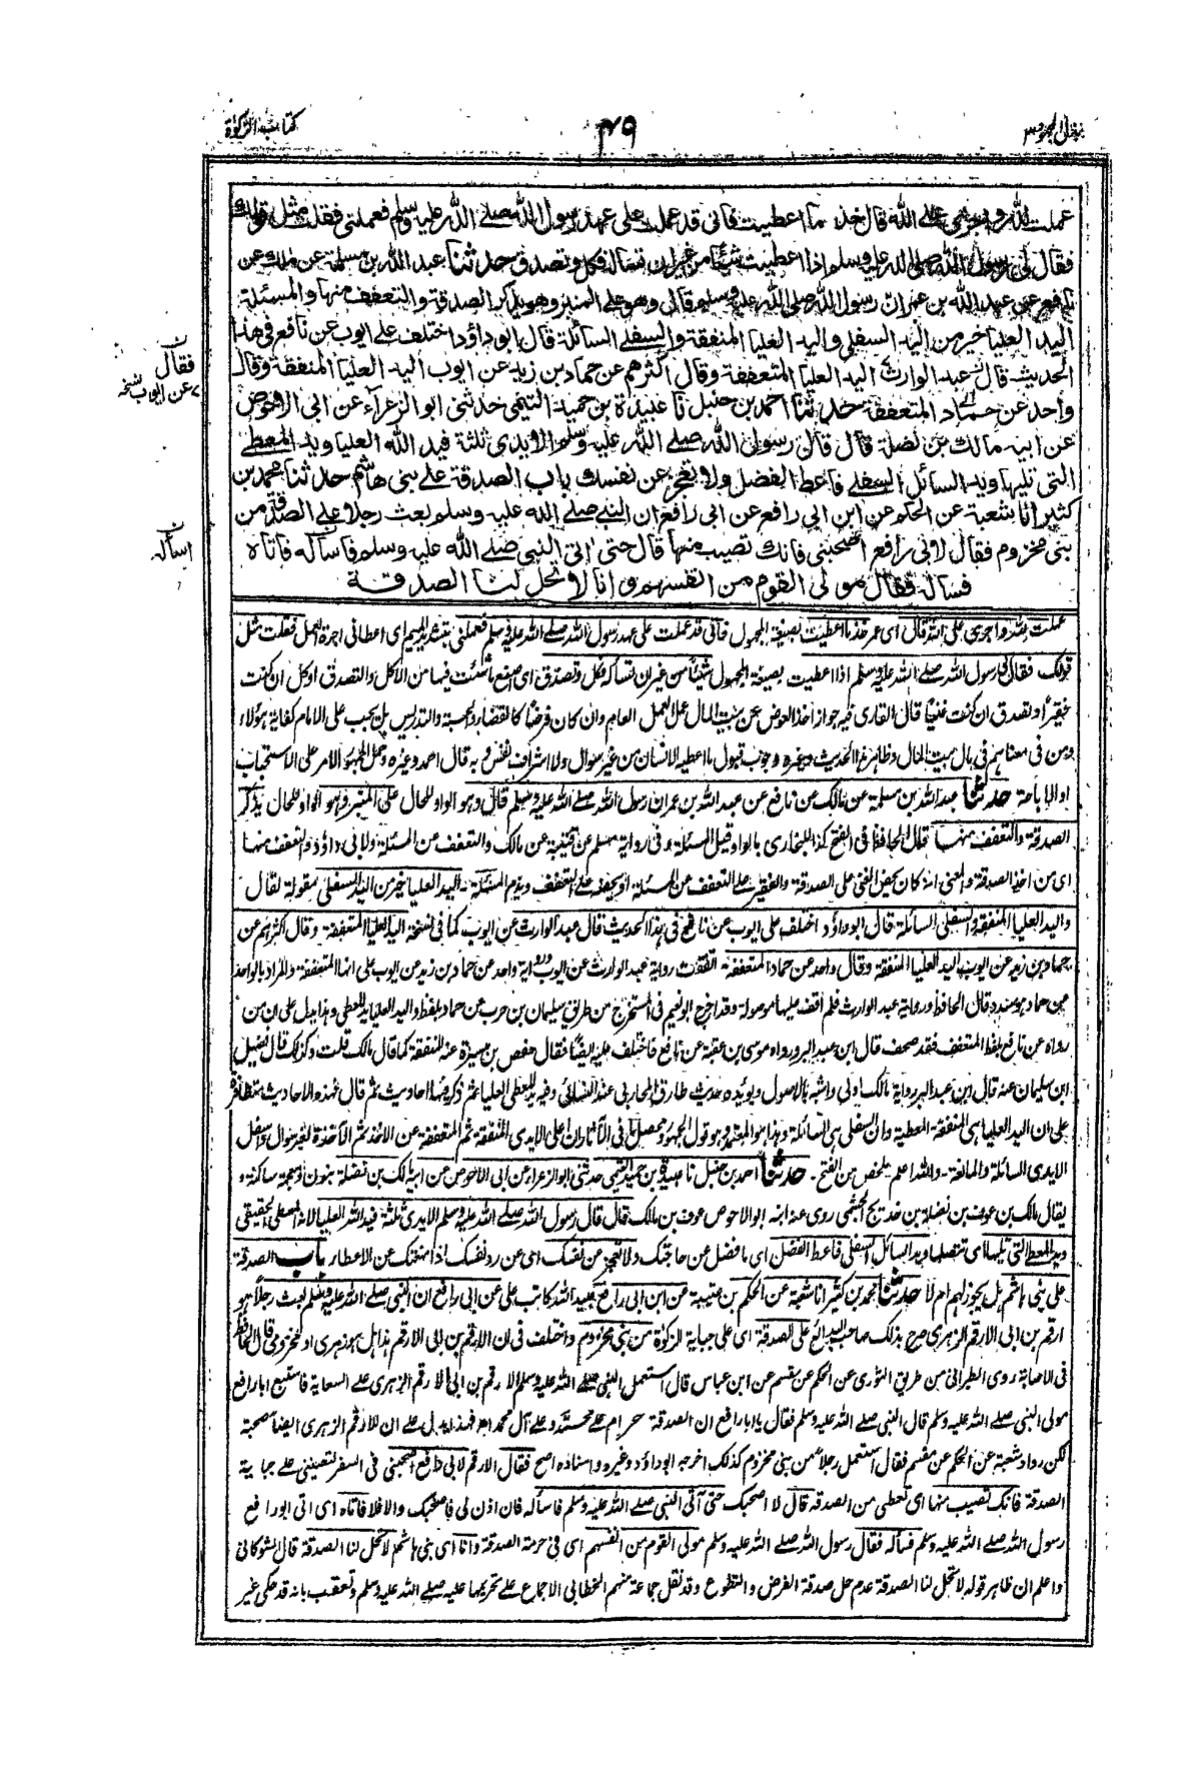 بذل المجهود ٣
٤٩
كتاب الزكوٰة
عملت لله واجرى على الله قال خذ ما اعطيت فانى قد عملت على عهد رسول الله صلى الله عليه وسلم فعملنى فقلت مثل قولك
فقال لى رسول الله صلى الله عليه وسلم اذا اعطيت شيئا من غير ان تسأله فكل وتصدق حدثنا عبد الله بن مسلمة عن مالك عن
نافع عن عبد الله بن عمر ان رسول الله صلى الله عليه وسلم قال وهو على المنبر وهو يذكر الصدقة والتعفف منها والمسئلة
اليد العليا خير من اليد السفلى واليد العليا المنفقة والسفلى السائلة قال ابو داؤد اختلف على ايوب عن نافع فى هذا
الحديث قال عبد الوارث اليد العليا المتعففة وقال اكثرهم عن حماد بن زيد عن ايوب اليد العليا المنفقة وقال
واحد عن حماد المتعففة حدثنا احمد بن حنبل نا عبيدة بن حميد التيمى حدثنى ابو الزعراء عن ابى الاحوص
عن ابيه مالك بن نضلة قال قال رسول الله صلى الله عليه وسلم الايدى ثلثة فيد الله العليا ويد المعطى
التى تليها ويد السائل السفلى فاعط الفضل ولا تعجز عن نفسك باب الصدقة على بنى هاشم حدثنا محمد بن
كثير انا شعبة عن الحكم عن ابن ابى رافع عن ابى رافع ان النبى صلى الله عليه وسلم بعث رجلا على الصدقة من
بنى مخزوم فقال لابى رافع اصحبنى فانك تصيب منها قال حتى اتى النبى صلى الله عليه وسلم فاسأله فاتاه
فسأله فقال مولى القوم من انفسهم وانا لا تحل لنا الصدقة
فقال
عن ايوب نسخه
اسأله
عملت لله واجرى على الله قال اى عمر خذ ما اعطيت بصيغة المجهول فانى قد عملت على عهد رسول الله صلى الله عليه وسلم فعملنى بتشديد الميم اى اعطانى اجرة العمل فقلت مثل
قولك فقال لى رسول الله صلى الله عليه وسلم اذا اعطيت بصيغة المجهول شيئا من غير ان تسأله فكل وتصدق اى اصنع ما شئت فيها من الاكل والتصدق او كل ان كنت
فقيرا وتصدق ان كنت غنيا قال القارى فيه جواز اخذ العوض عن بيت المال على العمل العام وان كان فرضا كالقضاء والحسبة والتدريس بل يجب على الامام كفاية هؤلاء
ومن فى معناهم فى مال بيت المال وظاهر هذا الحديث وغيره وجوب قبول ما اعطيه الانسان من غير سوال ولا اشراف نفس وبه قال احمد وغيره وحمل الجمهور الامر على الاستحباب
او الاباحة حدثنا عبد الله بن مسلمة عن مالك عن نافع عن عبد الله بن عمر ان رسول الله صلى الله عليه وسلم قال وهو الواو للحال على المنبر وهو الواو للحال يذكر
الصدقة والتعفف منها قال الحافظ فى الفتح كذا للبخارى بالواو قبل المسئلة وفى رواية مسلم عن قتيبة عن مالك والتعفف عن المسئلة ولابى داؤد والتعفف منها
اى من اخذ الصدقة والمعنى انه كان يحض الغنى على الصدقة والفقير على التعفف عن المسئلة او يحضه على التعفف ويذم المسئلة ـ اليد العليا خير من اليد السفلى مقولة لقال
واليد العليا المنفقة والسفلى السائلة قال ابو داؤد اختلف على ايوب عن نافع فى هذا الحديث قال عبد الوارث عن ايوب كما فى نسخة اليد العليا المتعففة ـ وقال اكثرهم عن
حماد بن زيد عن ايوب اليد العليا المنفقة وقال واحد عن حماد المتعففة اتفقت رواية عبد الوارث عن ايوب ورواية واحد عن حماد بن زيد عن ايوب على انها المتعففة والمراد بالواحد
عن حماد مسدد قال الحافظ ورواية عبد الوارث فلم اقف عليها موصولة وقد اخرج ابو نعيم فى المستخرج من طريق سليمان بن حرب عن حماد بلفظ واليد العليا يد المعطى وهذا يدل على ان من
رواه عن نافع بلفظ المتعفف فقد صحف قال ابن عبد البر ورواه موسى بن عقبة عن نافع فاختلف عليه ايضا فقال حفص بن ميسرة عنه المنفقة كما قال مالك قلت وكذلك قال فضيل
ابن سليمان عنه قال ابن عبد البر رواية مالك اولى واشبه بالاصول ويؤيده حديث طارق المحاربى عند النسائى وفيه يد المعطى العليا ثم ذكر فيها احاديث ثم قال فهذه الاحاديث متظافرة
على ان اليد العليا هى المنفقة المعطية وان السفلى هى السائلة وهذا هو المعتمد وهو قول الجمهور ومحصل ما فى الآثار ان اعلى الايدى المنفقة ثم المتعففة عن الاخذ ثم الآخذة لغير سوال واسفل
الايدى السائلة والمانعة ـ والله اعلم ـ ملخص من الفتح ـ حدثنا احمد بن حنبل نا عبيدة بن حميد التيمى حدثنى ابو الزعراء عن ابى الاحوص عن ابيه مالك بن نضلة بنون ومعجمة ساكنة و
يقال مالك بن عوف بن نضلة بن خديج الجشمى روى عنه ابنه ابو الاحوص عوف بن مالك قال قال رسول الله صلى الله عليه وسلم الايدى ثلثة فيد الله العليا لانه المعطى الحقيقى
ويد المعطى التى تليها اى تتصلها ويد السائل السفلى فاعط الفضل اى ما فضل عن حاجتك ولا تعجز عن نفسك اى عن رد نفسك اذا منعتك عن الاعطاء باب الصدقة
على بنى هاشم هل يجوز لهم ام لا حدثنا محمد بن كثير انا شعبة عن الحكم بن عتيبة عن ابن ابى رافع عبيد الله كاتب على عن ابى رافع ان النبى صلى الله عليه وسلم بعث رجلا هو
ارقم بن ابى الارقم الزهرى صرح بذلك صاحب البدائع على الصدقة اى على جباية الزكوٰة من بنى مخزوم واختلف فى ان الارقم بن ابى الارقم هذا هل هو زهرى او مخزومى قال الحافظ
فى الاصابة روى الطبرانى من طريق الثورى عن الحكم عن مقسم عن ابن عباس قال استعمل النبى صلى الله عليه وسلم الارقم بن ابى الارقم الزهرى على السعاية فاستتبع ابا رافع
مولى النبى صلى الله عليه وسلم قال النبى صلى الله عليه وسلم فقال يا ابا رافع ان الصدقة حرام على محمد وعلى آل محمد فهذا يدل على ان للارقم الزهرى ايضا صحبة
لكن رواه شعبة عن الحكم عن مقسم فقال استعمل رجلا من بنى مخزوم كذلك اخرجه ابو داؤد وغيره واسناده اصح فقال الارقم لابى رافع اصحبنى فى السفر لتعيننى على جباية
الصدقة فانك تصيب منها اى تعطى من الصدقة قال لا اصحبك حتى آتى النبى صلى الله عليه وسلم فاسأله فان اذن لى فاصحبك والا فلا فاتاه اى اتى ابو رافع
رسول الله صلى الله عليه وسلم فسأله فقال رسول الله صلى الله عليه وسلم مولى القوم من انفسهم اى فى حرمة الصدقة وانا اى بنى هاشم لا تحل لنا الصدقة قال الشوكانى
واعلم ان ظاهر قوله لا تحل لنا الصدقة عدم حل صدقة الفرض والتطوع وقد نقل جماعة منهم الخطابى الاجماع على تحريمها عليه صلى الله عليه وسلم وتعقب بانه قد حكى غير